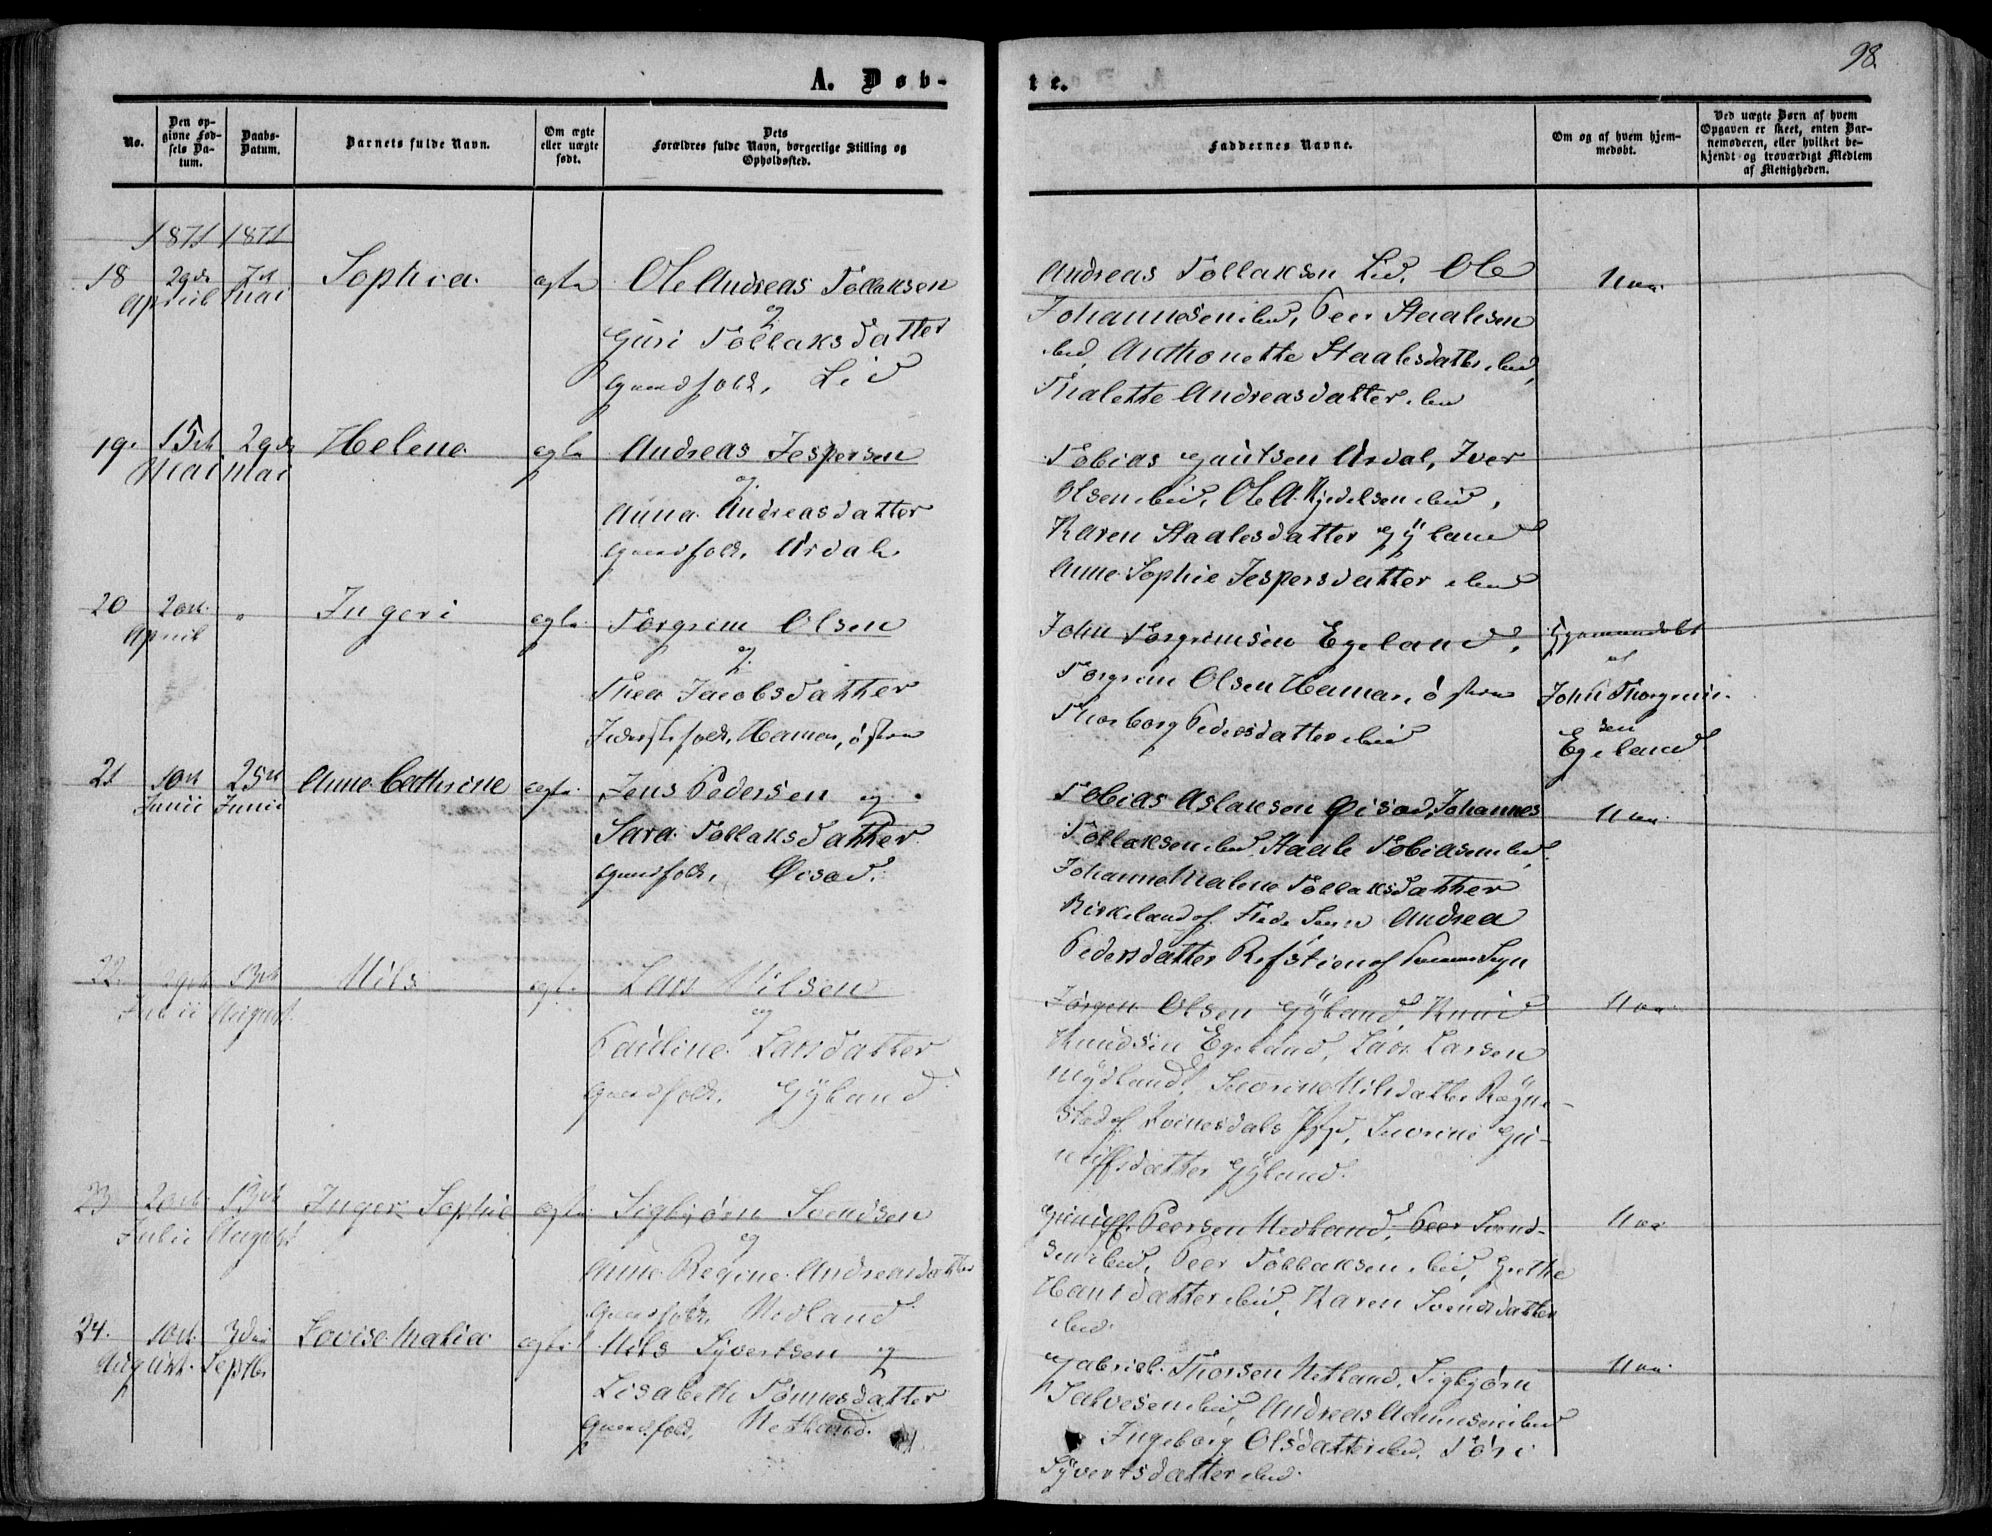 98.
A. Døb-
te.
No.
Den opgivne Fødsels Datum.
Daabs-Datum.
Barnets fulde Navn.
Om ægte eller uægte født.
Dets Forældres fulde Navn, borgerlige Stilling og Opholdssted.
Faddernes Navne.
Om og af hvem hjemmedøbt.
Ved uægte Børn af hvem Opgaven er skeet, enten Barnemoderen, eller hvilket bekjendt og troværdigt Medlem af Menigheden.
1871 1871
18 29de 7de Sophia. egte Ole Andreas Tollaksen
April Mai og
Guri Tollaksdatter
Gaardfolk, Lid
Andreas Tollaksen Lid, Ole
Johannesen ibid, Peer Staalesen
ibid, Anthonette Staalesdatter ibid,
Malette Andreasdatter ibid
19. 15de 29de Helene egte Andreas Jespersen
Mai Mai og
Anna Andreasdatter
Gaardfolk, Urdal
Tobias Gautsen Urdal, Iver
Olsen ibid, Ole A. Kjedelsen ibid,
Karen Staalesdatter Gÿland
Anne Sophie Jespersdatter ibid
20 20de " Ingeri egte Torgrim Olsen
April og
Thea Jacobsdatter
Inderstfolk, Hamar, østre
John Torgrimsen Egeland,
Torgrim Olsen Hamar, østre
Thorborg Pedersdatter ibid
Hjemmedøbt
af
John Thorgrim-
sen
Egeland
21 10de 25de Anne Cathrine egte Jens Pedersen og
Junii Junii Sara Tollaksdatter
Gaardfolk, Øisæd.
Tobias Aslaksen Øisæd, Johannes
Tollaksen ibid, Staale Tobiasen ibid,
Johanne Malene Tollaksdatter
Birkeland af Andrea
Pedersdatter Refstien af Sogn
22. 29de 13de Nils egte Lars Nilsen
Julii August. og
Pauline Larsdatter
Gaardfolk, Gÿland
Jørgen Olsen Gÿland, Knud
Knudsen Egeland, Lars Larsen
Mÿdland, Severine Nilsdatter Røÿne-
stad af Qvinesdals Severine Gu-
nufsdatter Gÿland.
23 20de 13de Inger Sophie egte Sigbjørn Svendsen
Julii August og
Anne Regine Andreasdatter
Gaardfolk, Nedland
Gunuf Peersen Nedland, Peer Svend-
sen ibid, Peer Tollaksen ibid, Grethe
Hansdatter ibid, Karen Svendsdatter
ibid.
24. 10de 3die Lovise Maria egte Nils Sÿvertsen og
August. Septbr Lisabeth Tønnesdatter
Gaardfolk, Netland.
Gabriel Thorsen Netland, Sigbjørn
Salvesen ibid, Andreas Aanensen ibid
Ingeborg Olsdatter ibid, Tøri
Sÿvertsdatter ibid.